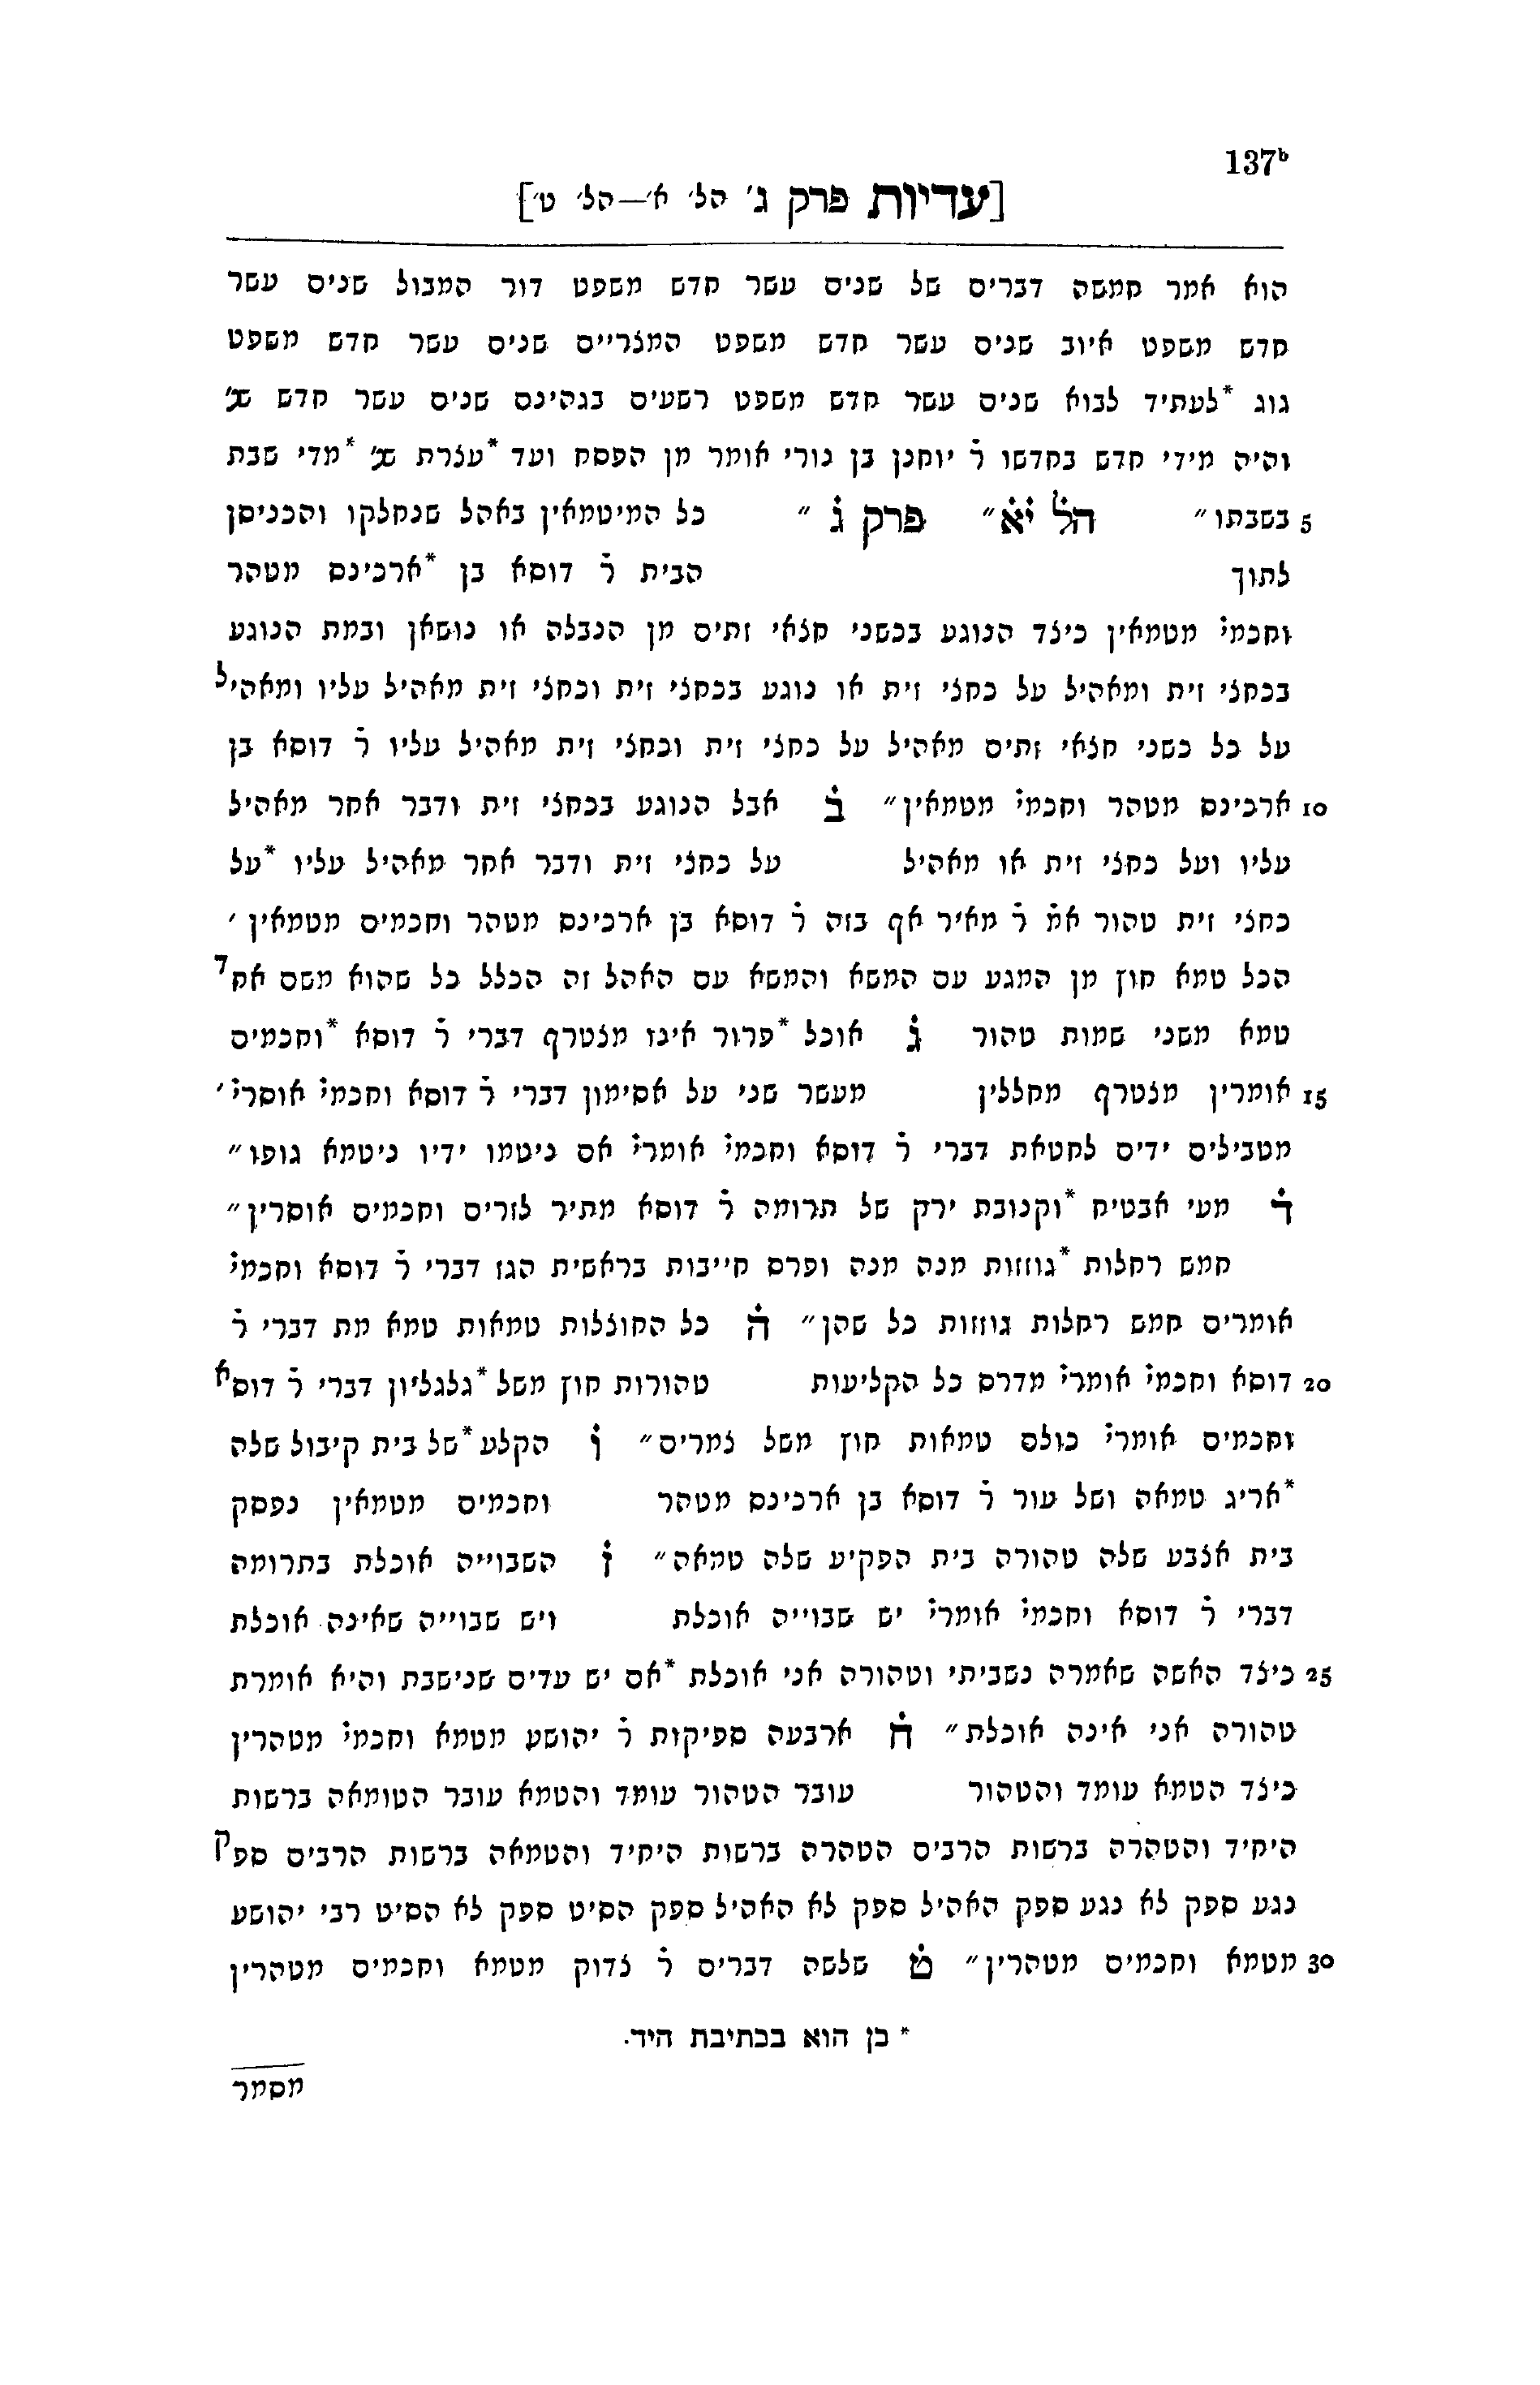 137ᵇ
[עדיות פרק ג' הל' א'—הל' ט']
הוא אמר חמשה דברים של שנים עשר חדש משפט דור המבול שנים עשר
חדש משפט איוב שנים עשר חדש משפט המצריים שנים עשר חדש משפט
גוג *לעתיד לבוא שנים עשר חדש משפט רשעים בגהינם שנים עשר חדש שנ'
והיה מידי חדש בחדשו ר̇ יוחנן בן נורי אומר מן הפסח ועד *עצרת שנ' *מדי שבת
5 בשבתו״ הל̇ יא̇״ פרק ג̇ ״ כל המיטמאין באהל שנחלקו והכניסן
לתוך הבית ר̇ דוסא בן *ארכינס מטהר
וחכמי̇ מטמאין כיצד הנוגע בכשני חצאי זתים מן הנבלה או נושאן ובמת הנוגע
בכחצי זית ומאהיל על כחצי זית או נוגע בכחצי זית וכחצי זית מאהיל עליו ומאהיל
על כל כשני חצאי זתים מאהיל על כחצי זית וכחצי זית מאהיל עליו ר̇ דוסא בן
10 ארכינס מטהר וחכמי̇ מטמאין״ ב̇ אבל הנוגע בכחצי זית ודבר אחר מאהיל
עליו ועל כחצי זית או מאהיל על כחצי זית ודבר אחר מאהיל עליו *על
כחצי זית טהור אמ̇ ר̇ מאיר אף בזה ר̇ דוסא בן ארכינס מטהר וחכמים מטמאין ׳
הכל טמא חוץ מן המגע עם המשא והמשא עם האהל זה הכלל כל שהוא משם אחד
טמא משני שמות טהור ג̇ אוכל *פרור אינו מצטרף דברי ר̇ דוסא *וחכמים
15 אומרין מצטרף מחללין מעשר שני על אסימון דברי ר̇ דוסא וחכמי̇ אוסרי̇ ׳
מטבילים ידים לחטאת דברי ר̇ דוסא וחכמי̇ אומרי̇ אם ניטמו ידיו ניטמא גופו״
ד̇ מעי אבטיח *וקנובת ירק של תרומה ר̇ דוסא מתיר לזרים וחכמים אוסרין״
חמש רחלות *גוזזות מנה מנה ופרס חייבות בראשית הגז דברי ר̇ דוסא וחכמי̇
אומרים חמש רחלות גוזזות כל שהן״ ה̇ כל החוצלות טמאות טמא מת דברי ר̇
20 דוסא וחכמי̇ אומרי̇ מדרס כל הקליעות טהורות חוץ משל *גלגליון דברי ר̇ דוסא
וחכמים אומרי̇ כולם טמאות חוץ משל צמרים״ ו̇ הקלע *של בית קיבול שלה
*אריג טמאה ושל עור ר̇ דוסא בן ארכינס מטהר וחכמים מטמאין נפסק
בית אצבע שלה טהורה בית הפקיע שלה טמאה״ ז̇ השבוייה אוכלת בתרומה
דברי ר̇ דוסא וחכמי̇ אומרי̇ יש שבוייה אוכלת ויש שבוייה שאינה אוכלת
25 כיצד האשה שאמרה נשביתי וטהורה אני אוכלת *אם יש עדים שנישבת והיא אומרת
טהורה אני אינה אוכלת״ ח̇ ארבעה ספיקות ר̇ יהושע מטמא וחכמי̇ מטהרין
כיצד הטמא עומד והטהור עובר הטהור עומד והטמא עובר הטומאה ברשות
היחיד והטהרה ברשות הרבים הטהרה ברשות היחיד והטמאה ברשות הרבים ספק
נגע ספק לא נגע ספק האהיל ספק לא האהיל ספק הסיט ספק לא הסיט רבי יהושע
30 מטמא וחכמים מטהרין״ ט̇ שלשה דברים ר̇ צדוק מטמא וחכמים מטהרין
* כן הוא בכתיבת היד.
מסמר